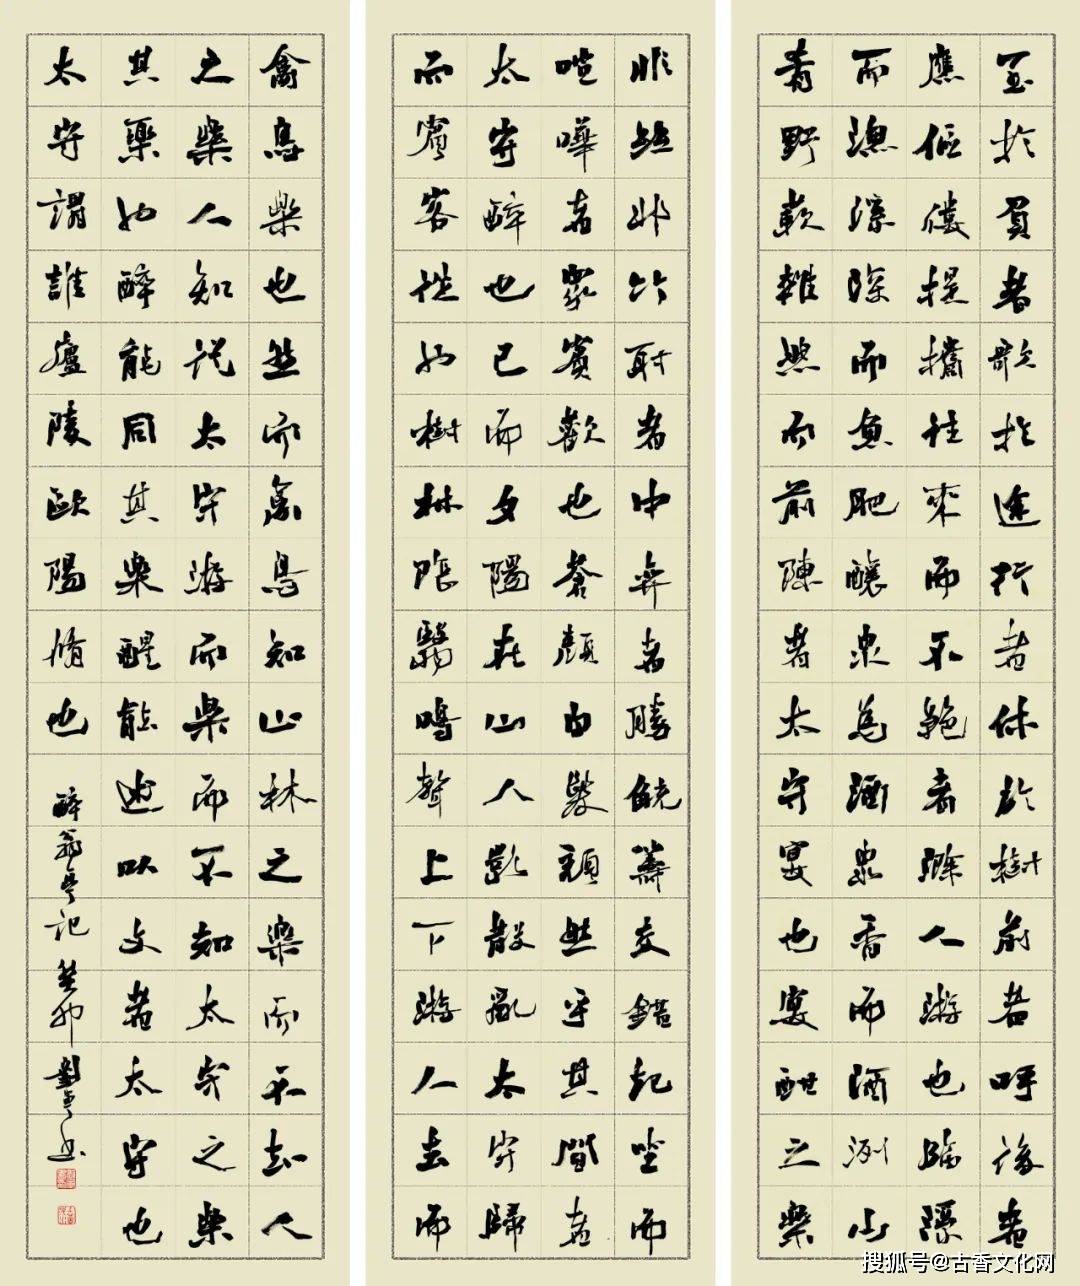 至於負者歌於途行者休於樹前者呼後者
應傴僂提攜往來而不絕者滁人游也臨溪
而漁溪深而魚肥釀泉為酒泉香而酒洌山
肴野蔌雜然而前陳者太守宴也宴酣之樂
非絲非竹射者中弈者勝觥籌交錯起坐而
喧嘩者眾賓歡也蒼顏白髮頹然乎其間者
太守醉也已而夕陽在山人影散亂太守歸
而賓客從也樹林陰翳鳴聲上下游人去而
禽鳥樂也然而禽鳥知山林之樂而不知人
之樂人知從太守游而樂而不知太守之樂
其樂也醉能同其樂醒能述以文者太守也
太守謂誰廬陵歐陽脩也
醉翁亭記 癸卯 劉 書
搜狐号@古香文化网